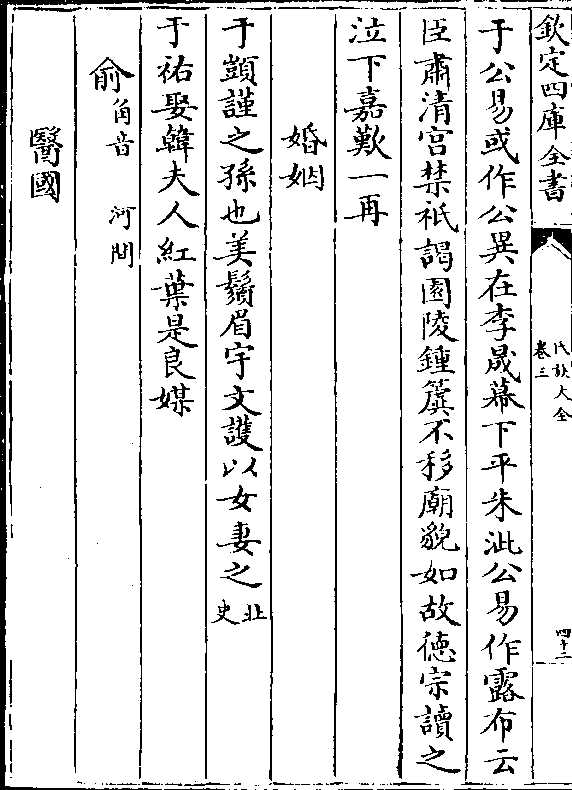 欽定四庫全書
氏族大全
卷三
四十二
于公易或作公異在李晟幕下平朱泚公易作露布云
臣肅清宫禁祇謁園陵鍾簴不移廟貌如故徳宗讀之
泣下嘉歎一再
婚姻
于顗謹之孫也美鬚眉宇文護以女妻之北史
于祐娶韓夫人紅葉是良媒
俞角音 河間
醫國